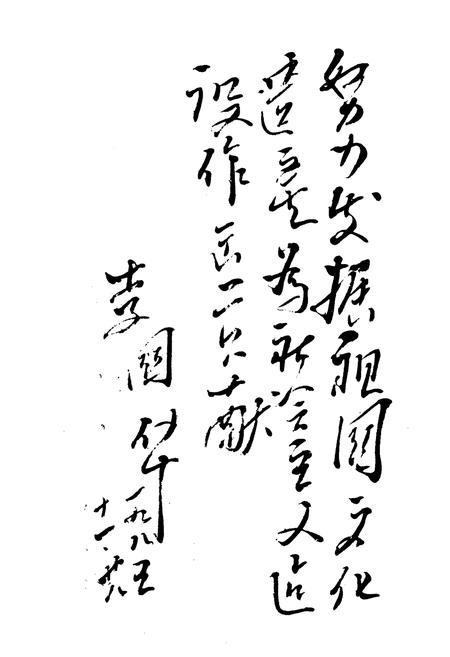 努力发掘祖国文化
遗产为社会主义建
设作出贡献
李国华
一九八五
十一